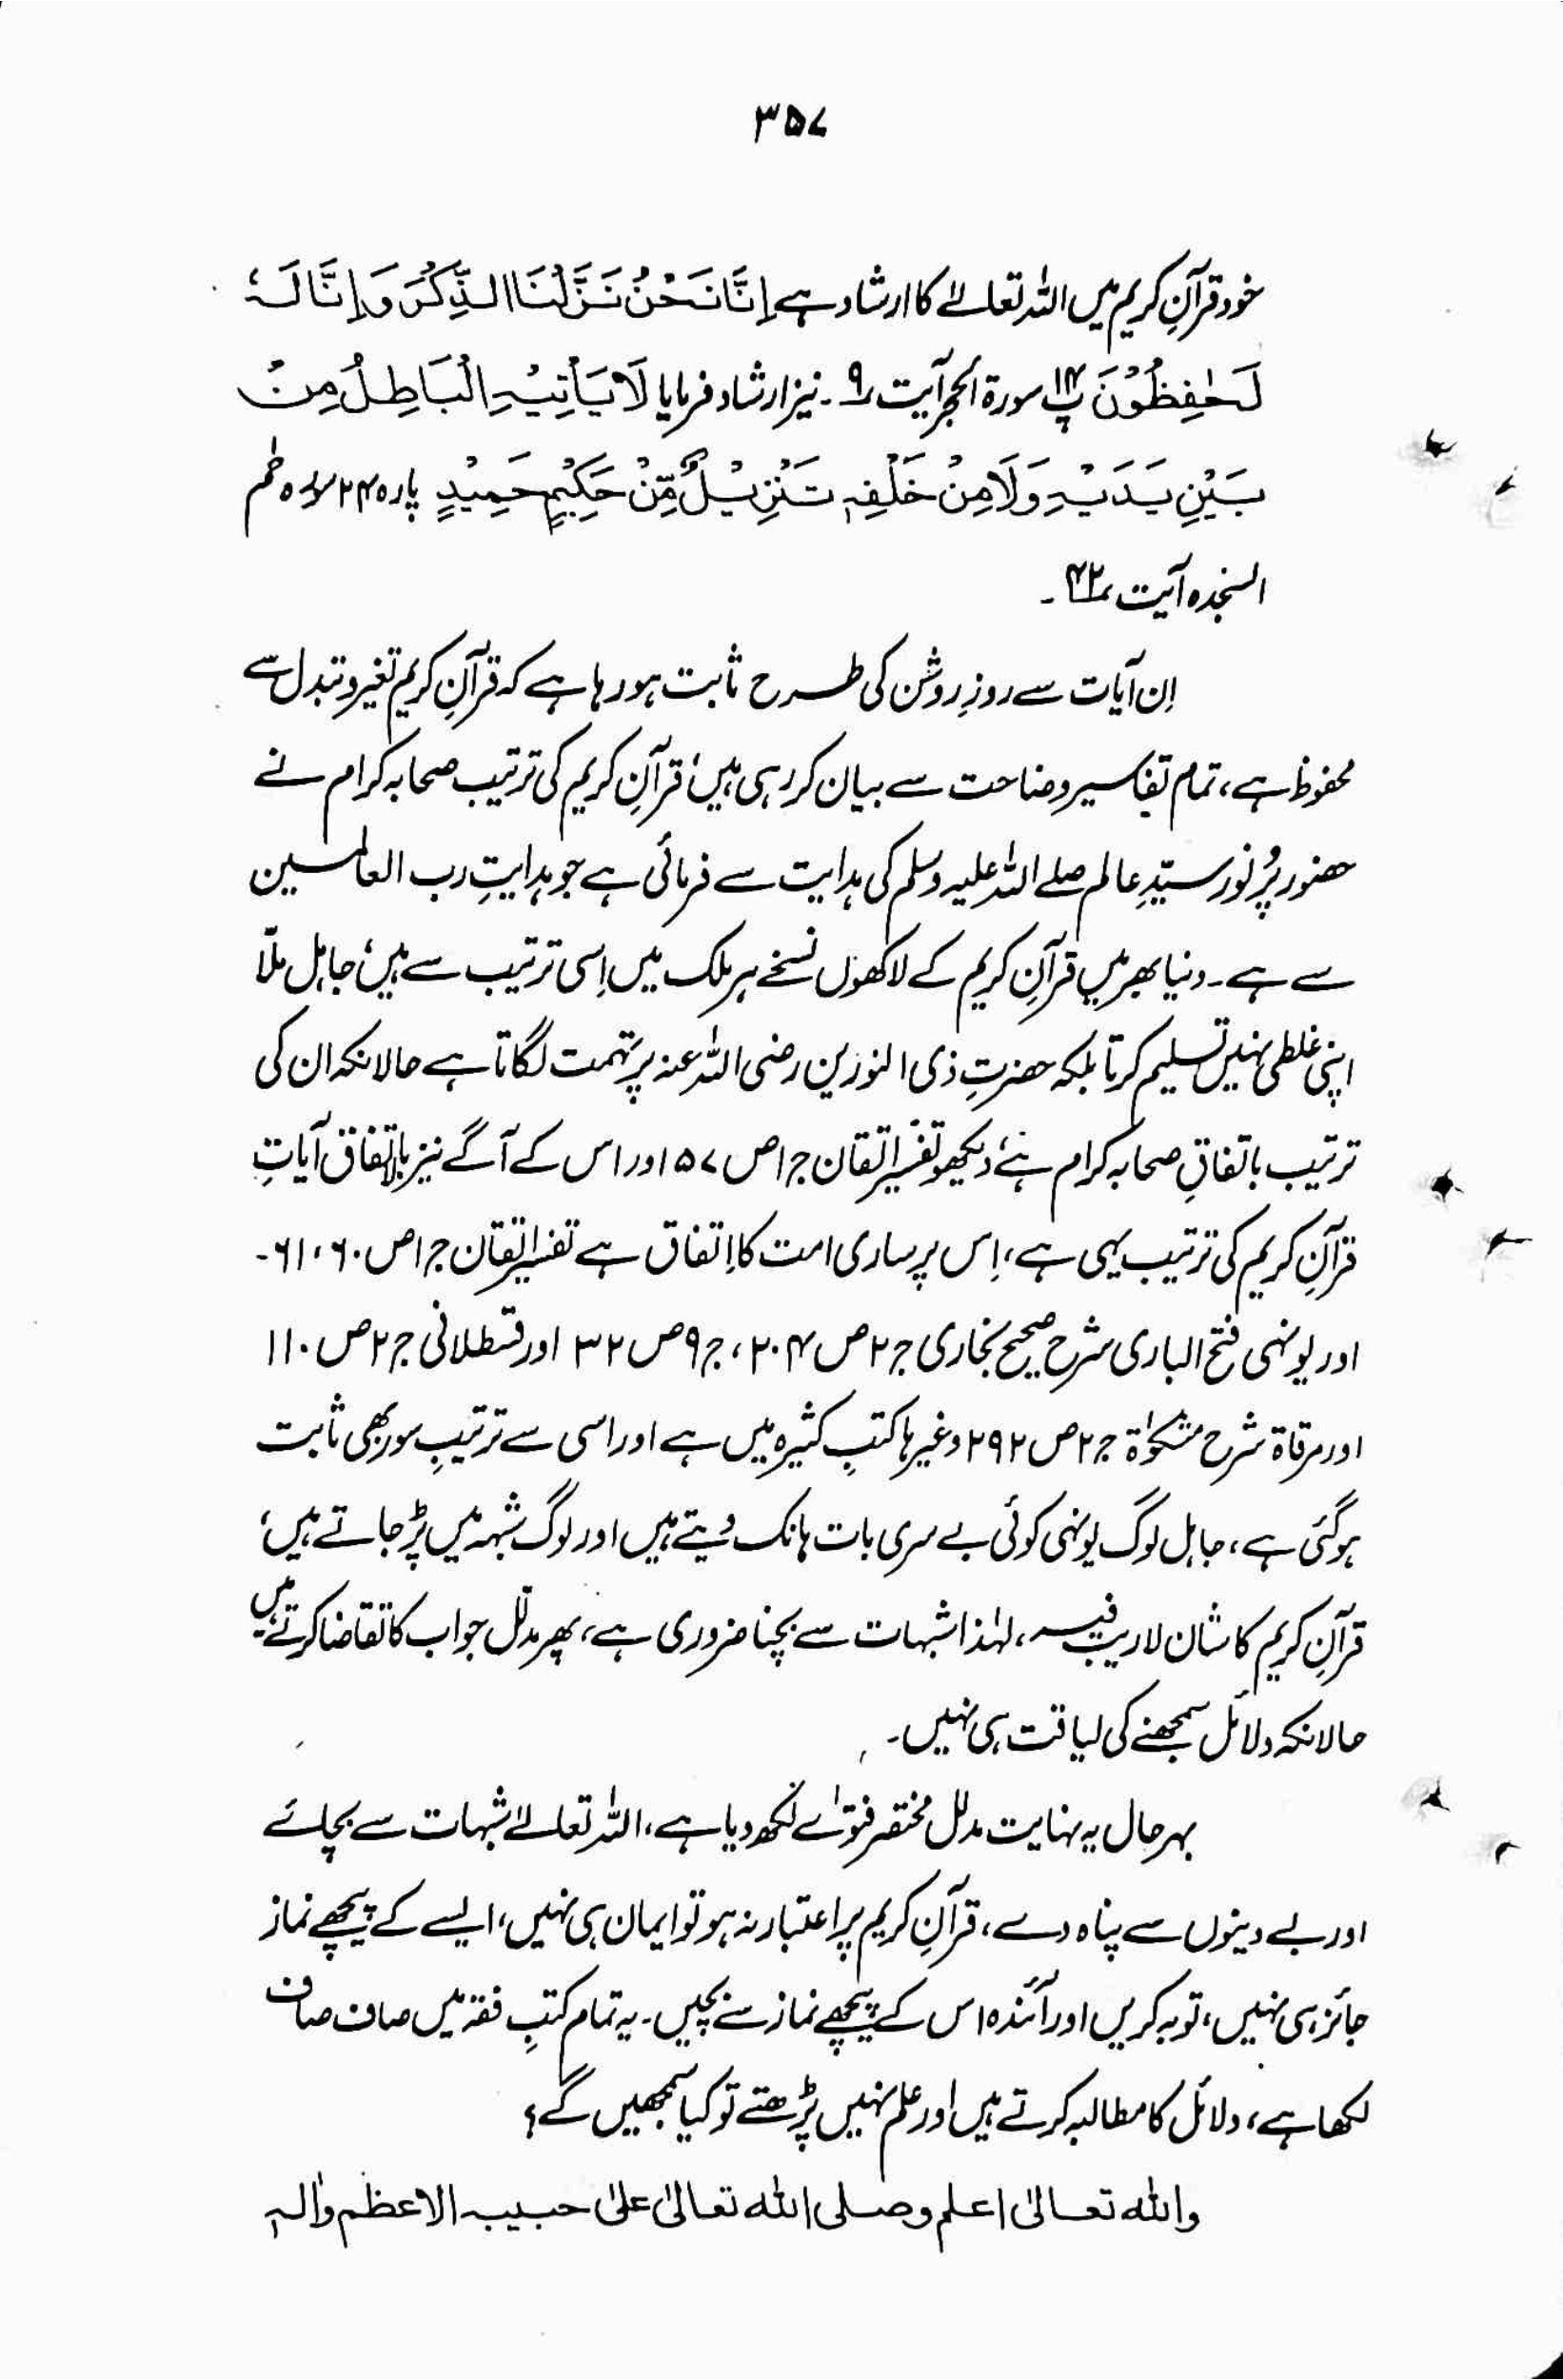 ۳۵۷
خود قرآنِ کریم میں اللہ تعالےٰ کا ارشاد ہے اِنَّا نَحْنُ نَزَّلْنَا الذِّكْرَ وَاِنَّا لَهٗ
لَحٰفِظُوْنَ پ۱۴ سورۃ الحجر آیت ۹۔ نیز ارشاد فرمایا لَا يَاْتِيْهِ الْبَاطِلُ مِنْ
بَيْنِ يَدَيْهِ وَلَا مِنْ خَلْفِهٖ تَنْزِيْلٌ مِّنْ حَكِيْمٍ حَمِيْدٍ پارہ ۲۴ سورہ حٰم
السجدہ آیت ۴۲۔
اِن آیات سے روزِ روشن کی طرح ثابت ہو رہا ہے کہ قرآنِ کریم تغیر و تبدل سے
محفوظ ہے، تمام تفاسیر وضاحت سے بیان کر رہی ہیں، قرآنِ کریم کی ترتیب صحابہ کرام نے
حضور پُر نور سیّدِ عالم صلے اللہ علیہ وسلم کی ہدایت سے فرمائی ہے جو ہدایتِ رب العالمین
سے ہے۔ دنیا بھر میں قرآنِ کریم کے لاکھوں نسخے ہر ملک میں اِسی ترتیب سے ہیں، جاہل ملّا
اپنی غلطی نہیں تسلیم کرتا بلکہ حضرتِ ذی النورین رضی اللہ عنہ پر تہمت لگاتا ہے حالانکہ ان کی
ترتیب باتفاقِ صحابہ کرام ہے، دیکھو تفسیر اتقان ج ۱ ص ۵۷ اور اس کے آگے نیز بالاتفاق آیاتِ
قرآنِ کریم کی ترتیب یہی ہے، اِس پر ساری امت کا اِتفاق ہے تفسیر اتقان ج ۱ ص ۶۰، ۶۱۔
اور یونہی فتح الباری شرح صحیح بخاری ج ۲ ص ۲۰۴، ج ۹ ص ۳۲ اور قسطلانی ج ۲ ص ۱۱۰
اور مرقاۃ شرح مشکوٰۃ ج ۲ ص ۲۹۲ وغیرہا کتبِ کثیرہ میں ہے اور اسی سے ترتیبِ سور بھی ثابت
ہو گئی ہے، جاہل لوگ یونہی کوئی بے سری بات ہانک دیتے ہیں اور لوگ شبہہ میں پڑ جاتے ہیں،
قرآنِ کریم کا شان لا ریب فیہ، لہٰذا شبہات سے بچنا ضروری ہے، پھر مدلّل جواب کا تقاضا کرتے ہیں
حالانکہ دلائل سمجھنے کی لیاقت ہی نہیں۔
بہر حال یہ نہایت مدلل مختصر فتوٰے لکھ دیا ہے، اللہ تعالےٰ شبہات سے بچائے
اور بے دینوں سے پناہ دے، قرآنِ کریم پر اعتبار نہ ہو تو ایمان ہی نہیں، ایسے کے پیچھے نماز
جائز ہی نہیں، توبہ کریں اور آئندہ اس کے پیچھے نماز سے بچیں۔ یہ تمام کتبِ فقہ میں صاف صاف
لکھا ہے، دلائل کا مطالبہ کرتے ہیں اور علم نہیں پڑھتے تو کیا سمجھیں گے؟
واللہ تعالیٰ اعلم وصلی اللہ تعالیٰ علیٰ حبیبہ الاعظم واٰلہٖ